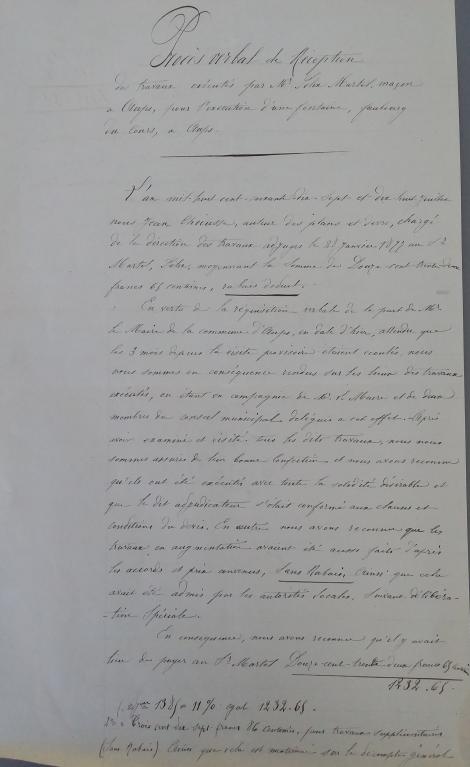 Procès verbal de Réception
des travaux exécutés par Mr. Félix Martel, maçon
a Aups, pour l'exécution d'une fontaine, faubourg
du cours, a Aups.
L'an mil huit cent soixante dix-sept et dix huit Juillet
nous Jean auteur des plans et devis, chargé
de la direction des travaux adjugés le 28 Janvier 1877 au Sr
Martel, Félix, moyennant la somme de Douze cent trente deux
francs 65 centimes, rabais déduit.
En vertu de la réquisition verbale de la part de Mr.
le Maire de la commune d'Aups, en date d'hier, attendu que
les 3 mois depuis la visite provisoire étaient écoulés, nous
nous sommes en conséquence rendus sur les lieux des travaux
exécutés, en étant en compagnie de Mr. le Maire et de deux
membres du conseil municipal délégués a cet effet. Après
avoir examiné et visité tous les dits travaux, nous nous
sommes assurés de leur bonne confection et nous avons reconnu
qu'ils ont été exécutés avec toute la solidité désirable et
que le dit adjudicateur s'était conformé aux clauses et
conditions du devis. En outre nous avons reconnu que les
travaux en augmentation avaient été aussi faits d'après
les accords et prix convenus, Sans Rabais, Ainsi que cela
avait été admis par les autorités locales, suivant délibéra-
-tion spéciale.
En conséquence, nous avons reconnu qu'il y avait
lieu de payer au Sr. Martel Douze cent trente deux francs 65 centimes
1232.65
1385 = 11% égal 1232.65.
2° = Trois cent dix sept francs 86 centimes, pour travaux supplémentaires
(Sans Rabais) Ainsi que cela est mentionné sur le décompte général